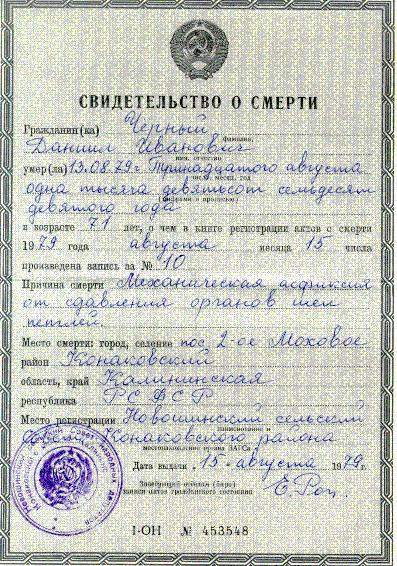 СВИДЕТЕЛЬСТВО О СМЕРТИ
Гражданин(ка) Черный
фамилия,
Даниил Иванович
имя, отчество
умер(ла) 13.08.79г. Тринадцатого августа
число, месяц, год
одна тысяча девятьсот семьдесят
(цифрами и прописью)
девятого года
в возрасте 71 лет, о чем в книге регистрации актов о смерти
1979 года августа месяца 15 числа
произведена запись за № 10
Причина смерти Механическая асфиксия
от сдавления органов шеи
петлей.
Место смерти: город, селение пос. 2-ое Моховое
район Конаковский
область, край Калининская
республика РСФСР
Место регистрации Новошинский сельский
наименование и
Конаковского района
местонахождение органа ЗАГСа
Дата выдачи 15 августа 1979 г.
Заведующий отделом (бюро)
записи актов гражданского состояния
I-ОН № 453548